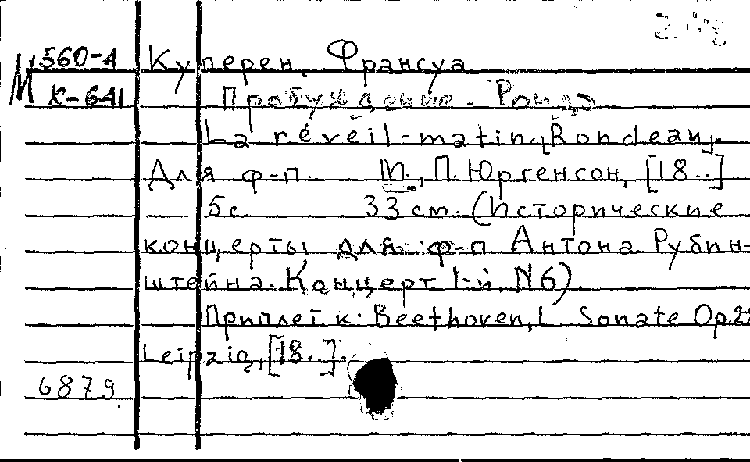 560-4 Куперен, Франсуа
М К-641 Пробуждение. Рондо
La réveil-matin [Rondeau].
Для ф-п М., П. Юргенсон, [18..]
5 с. 33 см. (Исторические
концерты для ф-п Антона Рубин-
штейна. Концерт 1-й N6)
Приплет к: Beethoven, L. Sonate Op.22
Leipzig, [18..].
6879